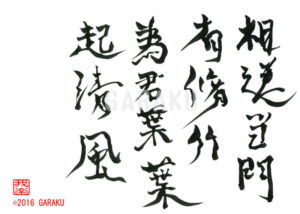 相送当門
有脩竹
為君葉葉
起清風
GARAKU
我楽
©2016 GARAKU